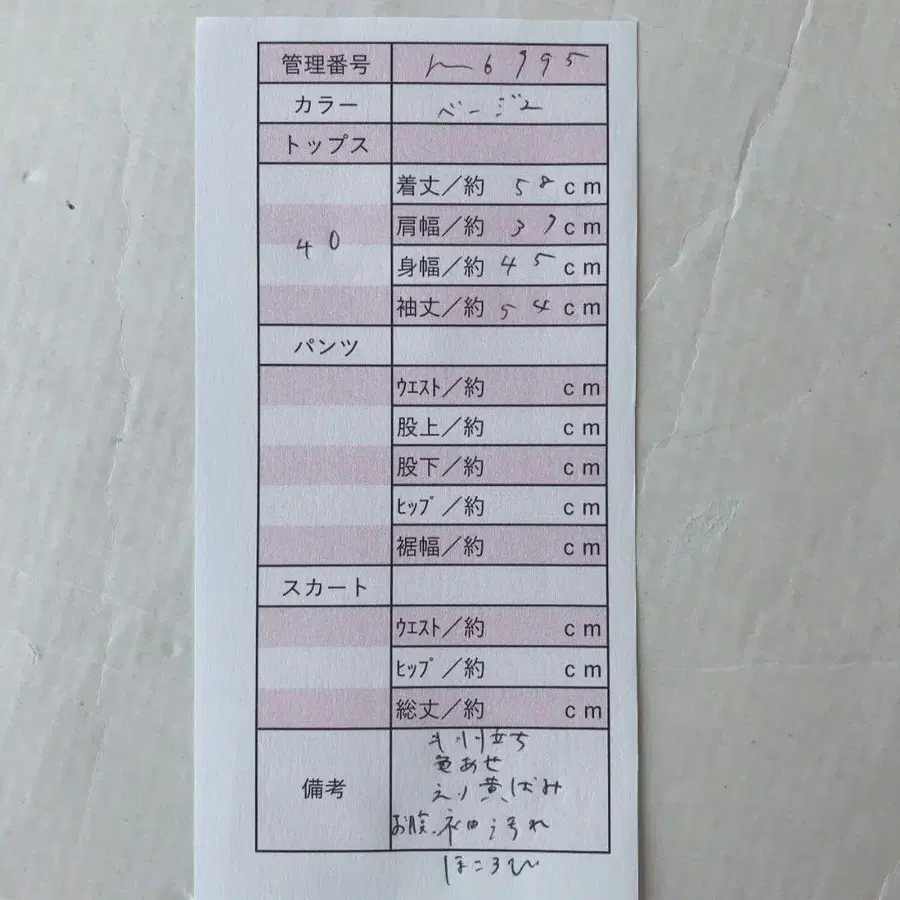 管理番号 h6995
カラー ベージュ
トップス
40
着丈／約 58 cm
肩幅／約 37 cm
身幅／約 45 cm
袖丈／約 54 cm
パンツ
ｳｴｽﾄ／約 cm
股上／約 cm
股下／約 cm
ﾋｯﾌﾟ／約 cm
裾幅／約 cm
スカート
ｳｴｽﾄ／約 cm
ﾋｯﾌﾟ／約 cm
総丈／約 cm
備考
毛羽立ち
色あせ
えり黄ばみ
お腹、袖汚れ
ほころび